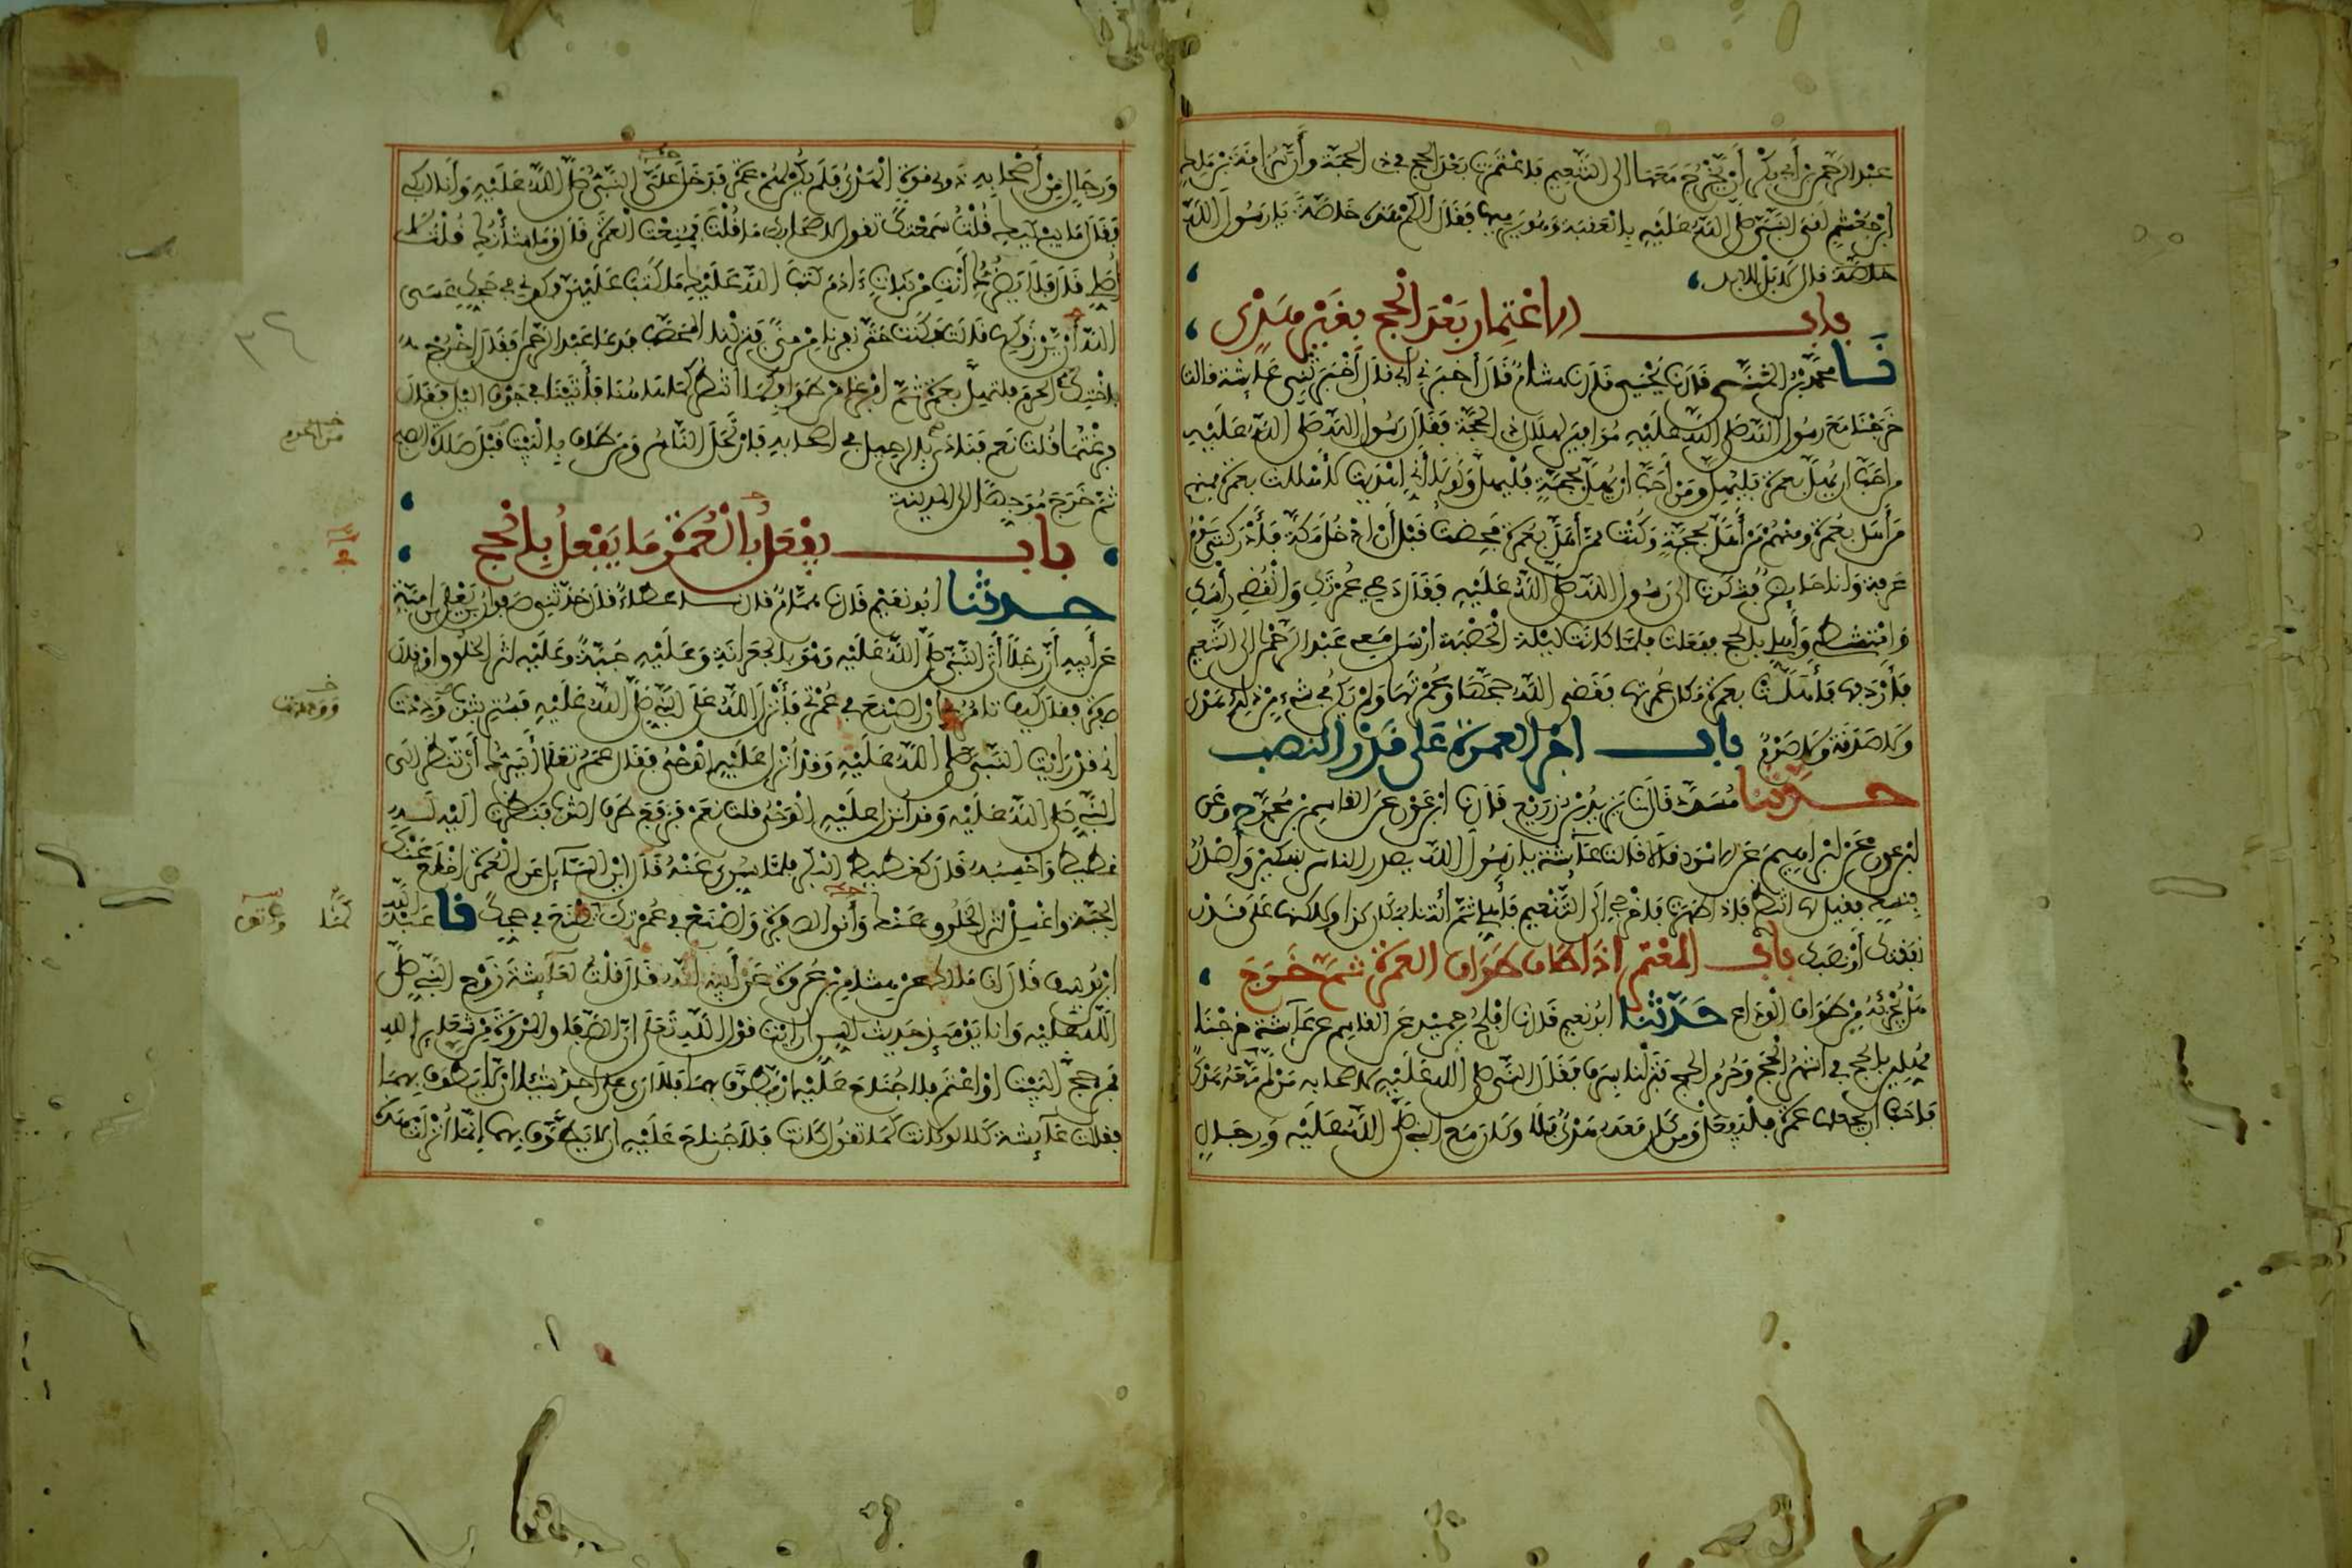 عبد الرحمن بن أبي بكر أن يخرج معها إلى التنعيم فاعتمرت بعد الحج في ذي الحجة وأن سراقة بن مالك
بن جعشم لقي النبي صلى الله عليه بالعقبة وهو يرميها فقال ألكم هذه خاصة يا رسول الله
خاصة قال لا بل للأبد
باب الاعتمار بعد الحج بغير هدي
نا محمد بن المثنى قال نا يحيى قال نا هشام قال أخبرني أبي قال أخبرتني عائشة قالت
خرجنا مع رسول الله صلى الله عليه موافين لهلال ذي الحجة فقال رسول الله صلى الله عليه
من أحب أن يهل بعمرة فليهل ومن أحب أن يهل بحجة فليهل ولولا أني أهديت لأهللت بعمرة فمنهم
من أهل بعمرة ومنهم من أهل بحجة وكنت ممن أهل بعمرة فحضت قبل أن أدخل مكة فأدركني يوم
عرفة وأنا حائض فشكوت إلى رسول الله صلى الله عليه فقال دعي عمرتك وانقضي رأسك
وامتشطي وأهلي بالحج ففعلت فلما كانت ليلة الحصبة أرسل معي عبد الرحمن إلى التنعيم
فأردفها فأهلت بعمرة مكان عمرتها فقضى الله حجها وعمرتها ولم يكن في شيء من ذلك هدي
ولا صدقة ولا صوم باب أجر العمرة على قدر النصب
حدثنا مسدد قال نا يزيد بن زريع قال نا ابن عون عن القاسم بن محمد ح وعن
ابن عون عن إبراهيم عن الأسود قالا قالت عائشة يا رسول الله يصدر الناس بنسكين وأصدر
بنسك فقيل لها انتظري فإذا طهرت فاخرجي إلى التنعيم فأهلي ثم ائتنا بمكان كذا ولكنها على قدر
نفقتك أو نصبك باب المعتمر إذا طاف طواف العمرة ثم خرج
هل يجزئه من طواف الوداع حدثنا أبو نعيم قال نا أفلح بن حميد عن القاسم عن عائشة خرجنا
مهلين بالحج في أشهر الحج وحرم الحج فنزلنا بسرف فقال النبي صلى الله عليه لأصحابه من لم يكن معه هدي
فأحب أن يجعلها عمرة فليفعل ومن كان معه هدي فلا وكان مع النبي صلى الله عليه ورجال
ورجال من أصحابه ذوي قوة الهدي فلم يكن لهم عمرة فدخل علي النبي صلى الله عليه وأنا أبكي
فقال ما يبكيك قلت سمعتك تقول لأصحابك ما قلت فمنعت العمرة قال وما شأنك قلت لا
أصلي قال فلا يضرك أنت من بنات آدم كتب الله عليك ما كتب عليهن فكوني في حجك عسى
الله أن يرزقكها قالت فكنت حتى نفرنا من منى فنزلنا المحصب فدعا عبد الرحمن فقال اخرج
بأختك الحرم فلتهل بعمرة ثم افرغا من طوافكما انتظركما هاهنا فأتينا في جوف الليل فقال
فرغتما قلنا نعم فنادى بالرحيل في أصحابه فارتحل الناس ومن طاف بالبيت قبل صلاة الصبح
ثم خرج موجها إلى المدينة
باب يفعل بالعمرة ما يفعل بالحج
حدثنا أبو نعيم قال نا همام قال نا عطاء قال حدثني صفوان بن يعلى بن أمية
عن أبيه أن رجلا أتى النبي صلى الله عليه وهو بالجعرانة وعليه جبة وعليه أثر الخلوق أو قال
صفرة فقال كيف تأمرني أن أصنع في عمرتي فأنزل الله على النبي صلى الله عليه فستر بثوب ووددت
أني قد رأيت النبي صلى الله عليه وقد أنزل عليه الوحي فقال عمر تعال أيسرك أن تنظر إلى
النبي صلى الله عليه وقد أنزل عليه الوحي قلت نعم فرفع طرف الثوب فنظرت إليه له
غطيط وأحسبه قال كغطيط البكر فلما سري عنه قال أين السائل عن العمرة اخلع عنك
الجبة واغسل أثر الخلوق عنك وأنق الصفرة واصنع في عمرتك كما تصنع في حجك نا عبد الله
بن يوسف قال أنا مالك عن هشام بن عروة عن أبيه أنه قال قلت لعائشة زوج النبي صلى
الله عليه وأنا يومئذ حديث السن أرأيت قول الله تعالى إن الصفا والمروة من شعائر الله
فمن حج البيت أو اعتمر فلا جناح عليه أن يطوف بهما فلا أرى على أحد شيئا أن لا يطوف بهما
فقالت عائشة كلا لو كانت كما تقول كانت فلا جناح عليه أن لا يطوف بهما إنما أنزلت هذه
من الحرم